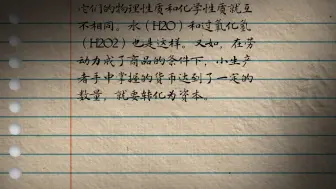 它们的物理性质和化学性质就互
不相同。水（H2O）和过氧化氢
（H2O2）也是这样。又如，在劳
动力成了商品的条件下，小生产
者手中掌握的货币达到了一定的
数量，就要转化为资本。